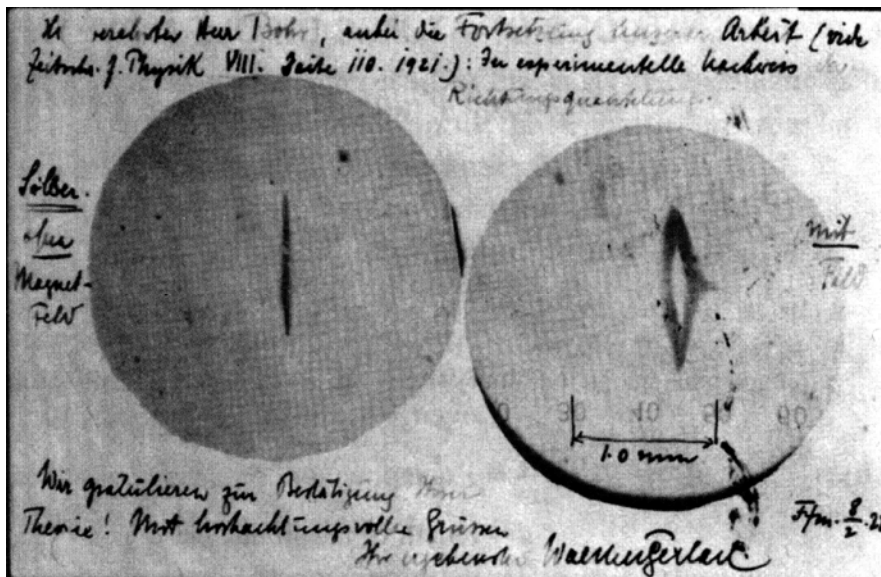 verehrter Herr Bohr, anbei die Fortsetzung unserer Arbeit (vide
Zeitschr. f. Physik VIII. Seite 110. 1921.): Der experimentelle Nachweis
Richtungsquantelung.
Silber
ohne
Magnet-
Feld
mit
Feld
30 40 60
1.0 mm
Wir gratulieren zur Bestätigung Ihrer
Theorie! Mit hochachtungsvollen Grüssen
Ihr ergebenster Walther Gerlach.
Ffm. 8/2. 22